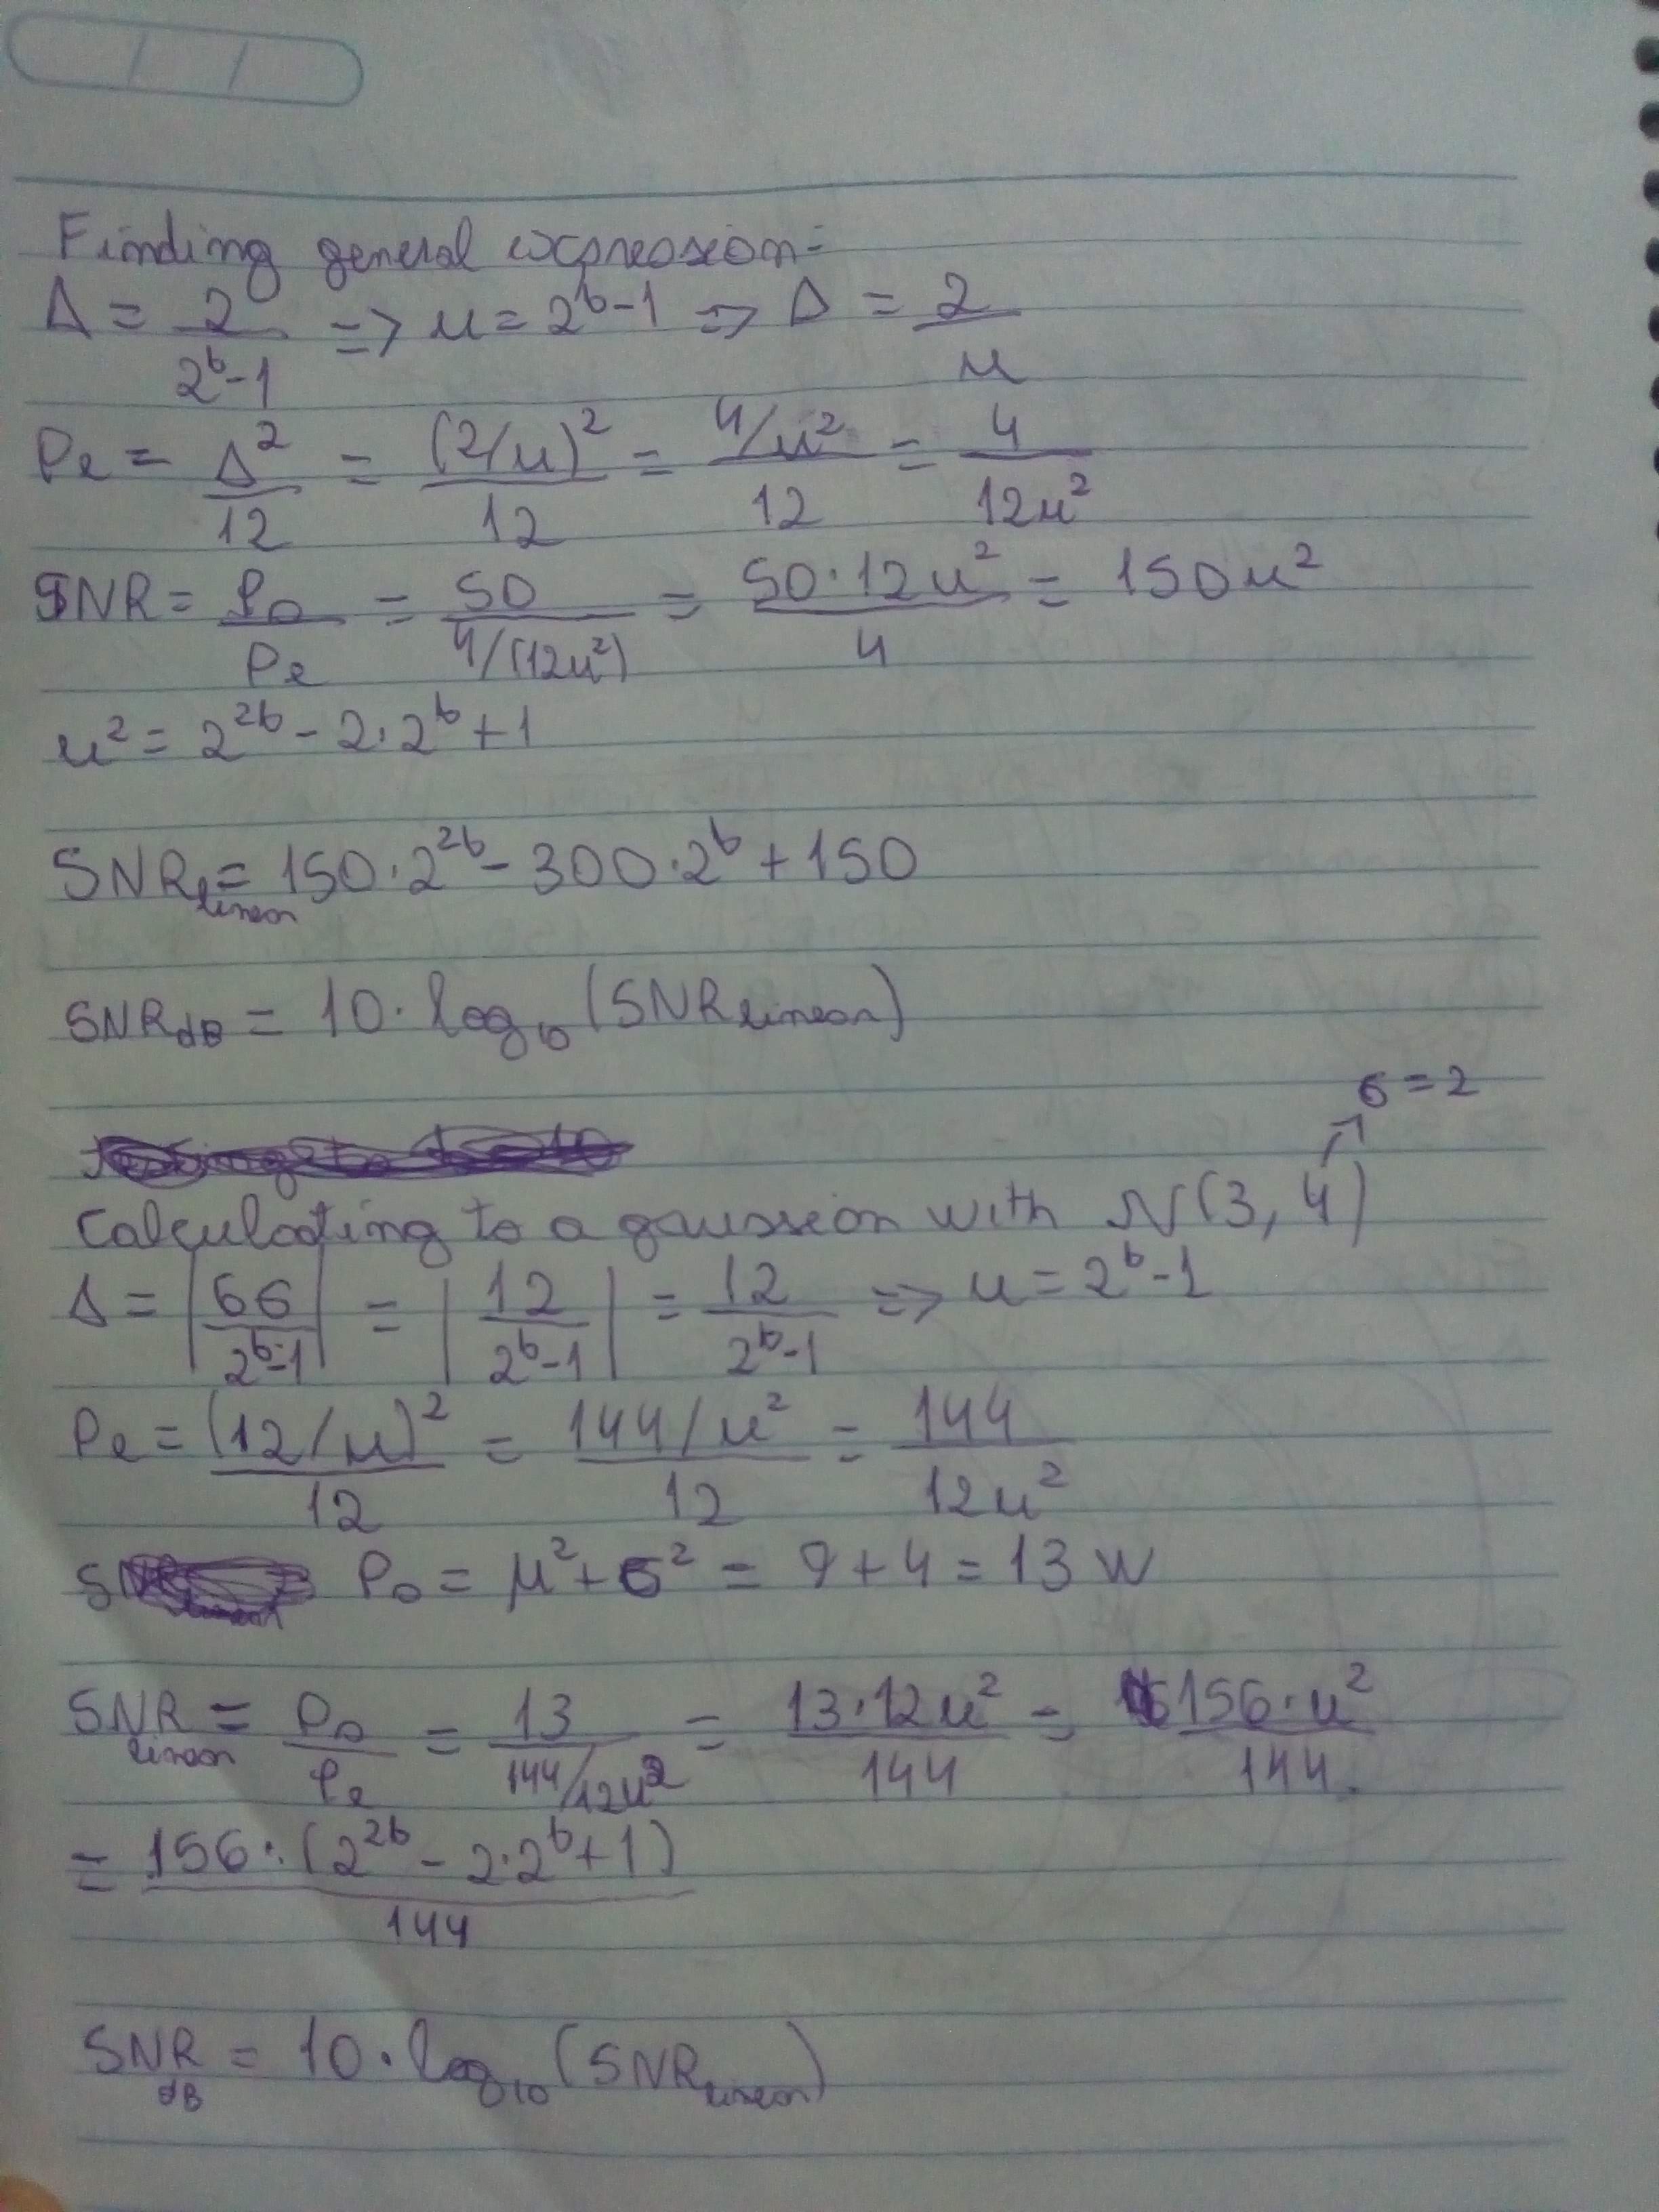 Finding general expression:
Δ = 2/(2^b-1) => u = 2^b-1 => Δ = 2/u
Pe = Δ^2/12 = (2/u)^2/12 = 4/u^2/12 = 4/(12u^2)
SNR = Po/Pe = 50/(4/(12u^2)) = 50·12u^2/4 = 150u^2
u^2 = 2^2b - 2·2^b + 1
SNR linear = 150·2^2b - 300·2^b + 150
SNR dB = 10·log10 (SNR linear)
σ = 2
Calculating to a gaussian with N(3, 4)
Δ = |6σ/(2^b-1)| = |12/(2^b-1)| = 12/(2^b-1) => u = 2^b-1
Pe = (12/u)^2/12 = 144/u^2/12 = 144/(12u^2)
Po = μ^2 + σ^2 = 9 + 4 = 13 W
SNR linear = Po/Pe = 13/(144/12u^2) = 13·12u^2/144 = 156·u^2/144
= 156·(2^2b - 2·2^b + 1)/144
SNR dB = 10·log10 (SNR linear)